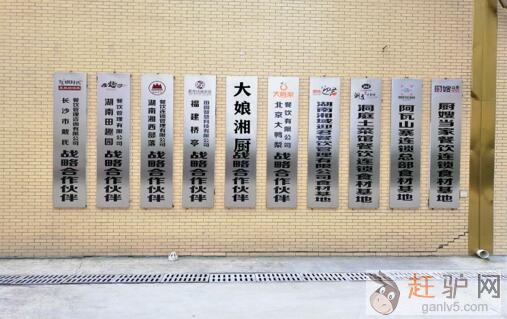 长沙市戴氏
餐饮管理咨询有限公司
战略合作伙伴
湖南田趣园
餐饮管理有限公司
战略合作伙伴
湖南湘西部落
餐饮连锁管理有限公司
战略合作伙伴
福建桥亭
战略合作伙伴
大娘湘厨
战略合作伙伴
大鸭梨
北京大鸭梨
餐饮有限公司
战略合作伙伴
湖南湘球迎君餐饮管理有限公司食材基地
洞庭土菜馆餐饮连锁食材基地
阿瓦山寨连锁总部食材基地
厨嫂
厨嫂当家餐饮连锁食材基地
赶驴网
ganlv5.com